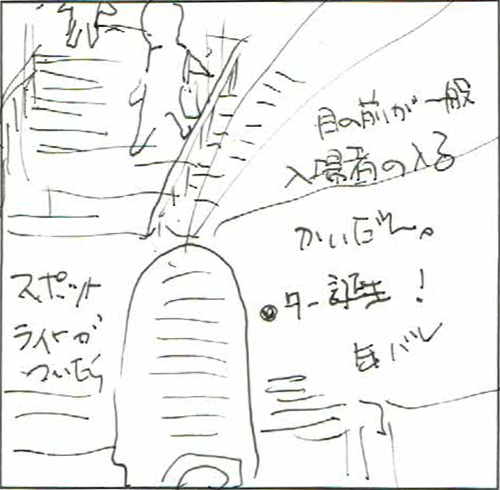 目の前が一般
入場者の入る
かいだん。
ター誕生!
スポット
ライトが
ついたら